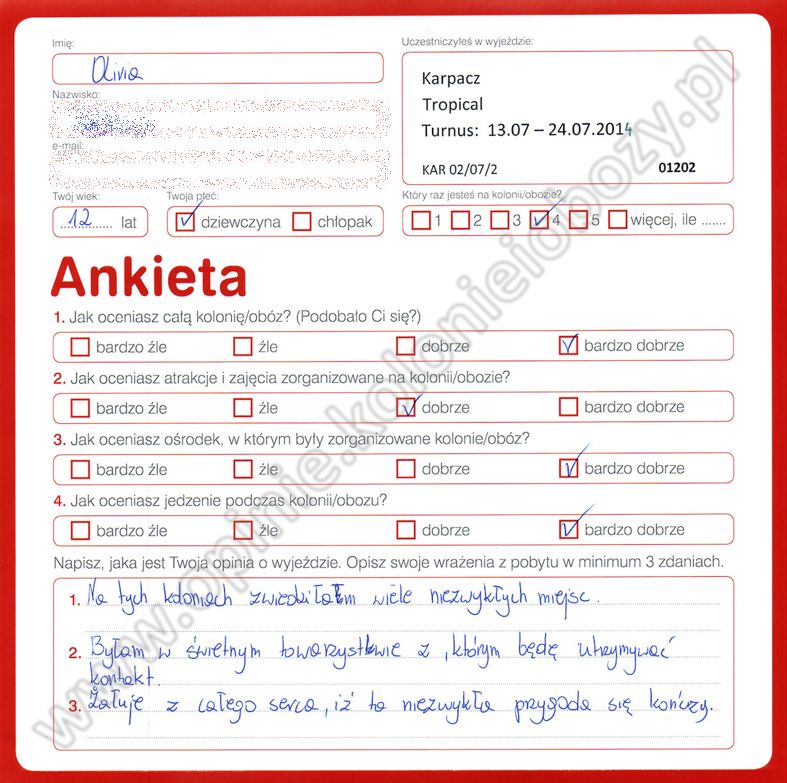 Imię:
Olivia
Nazwisko:
e-mail:
Twój wiek:
12 lat
Twoja płeć:
dziewczyna chłopak
Uczestniczyłeś w wyjeździe:
Karpacz
Tropical
Turnus: 13.07 – 24.07.2014
KAR 02/07/2 01202
Który raz jesteś na kolonii/obozie?
1 2 3 4 5 więcej, ile .......
Ankieta
1. Jak oceniasz całą kolonię/obóz? (Podobało Ci się?)
bardzo źle źle dobrze bardzo dobrze
2. Jak oceniasz atrakcje i zajęcia zorganizowane na kolonii/obozie?
bardzo źle źle dobrze bardzo dobrze
3. Jak oceniasz ośrodek, w którym były zorganizowane kolonie/obóz?
bardzo źle źle dobrze bardzo dobrze
4. Jak oceniasz jedzenie podczas kolonii/obozu?
bardzo źle źle dobrze bardzo dobrze
Napisz, jaka jest Twoja opinia o wyjeździe. Opisz swoje wrażenia z pobytu w minimum 3 zdaniach.
1. Na tych koloniach zwiedziłałam wiele niezwykłych miejsc.
2. Byłam w świetnym towarzystwie z , którym będę utrzymywać
kontakt.
3. Żałuje z całego serca, iż ta niezwykła przygoda się kończy.
www.opinie.kolonieiobozy.pl